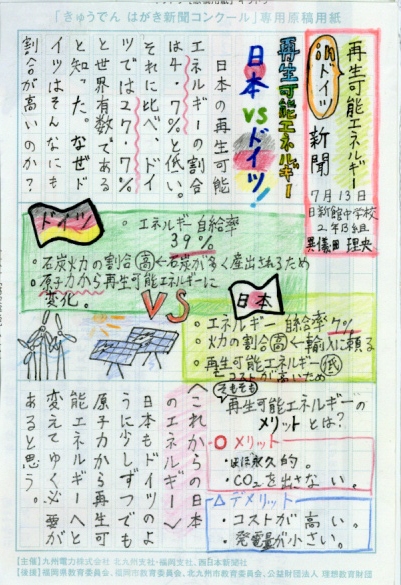 「きゅうでん はがき新聞コンクール」専用原稿用紙
再生可能エネルギー
inドイツ
新聞
7月13日
日新館中学校
2年B組
異儀田 理央
再生可能エネルギー
日本VSドイツ!
日本の再生可能
エネルギーの割合
は4.7%と低い。
それに比べ、ドイ
ツでは27.7%
と世界有数である
と知った。なぜド
イツはそんなにも
割合が高いのか?
ドイツ
・エネルギー自給率
39%
・石炭火力の割合高←石炭が多く産出されるため
・原子力から再生可能エネルギーに
変化。
VS
日本
・エネルギー自給率7%
・火力の割合高←輸入に頼る
・再生可能エネルギー低
←コストが高いため
そもそも
再生可能エネルギーの
メリットとは?
○メリット
・ほぼ永久的。
・CO2を出さない。
△デメリット
・コストが高い。
・発電量が小さい。
〈これからの日本
のエネルギー〉
日本もドイツのよ
うに少しずつでも
原子力から再生可
能エネルギーへと
変えてゆく必要が
あると思う。
【主催】九州電力株式会社 北九州支社・福岡支社、西日本新聞社
【後援】福岡県教育委員会、福岡市教育委員会、北九州市教育委員会、公益財団法人 理想教育財団